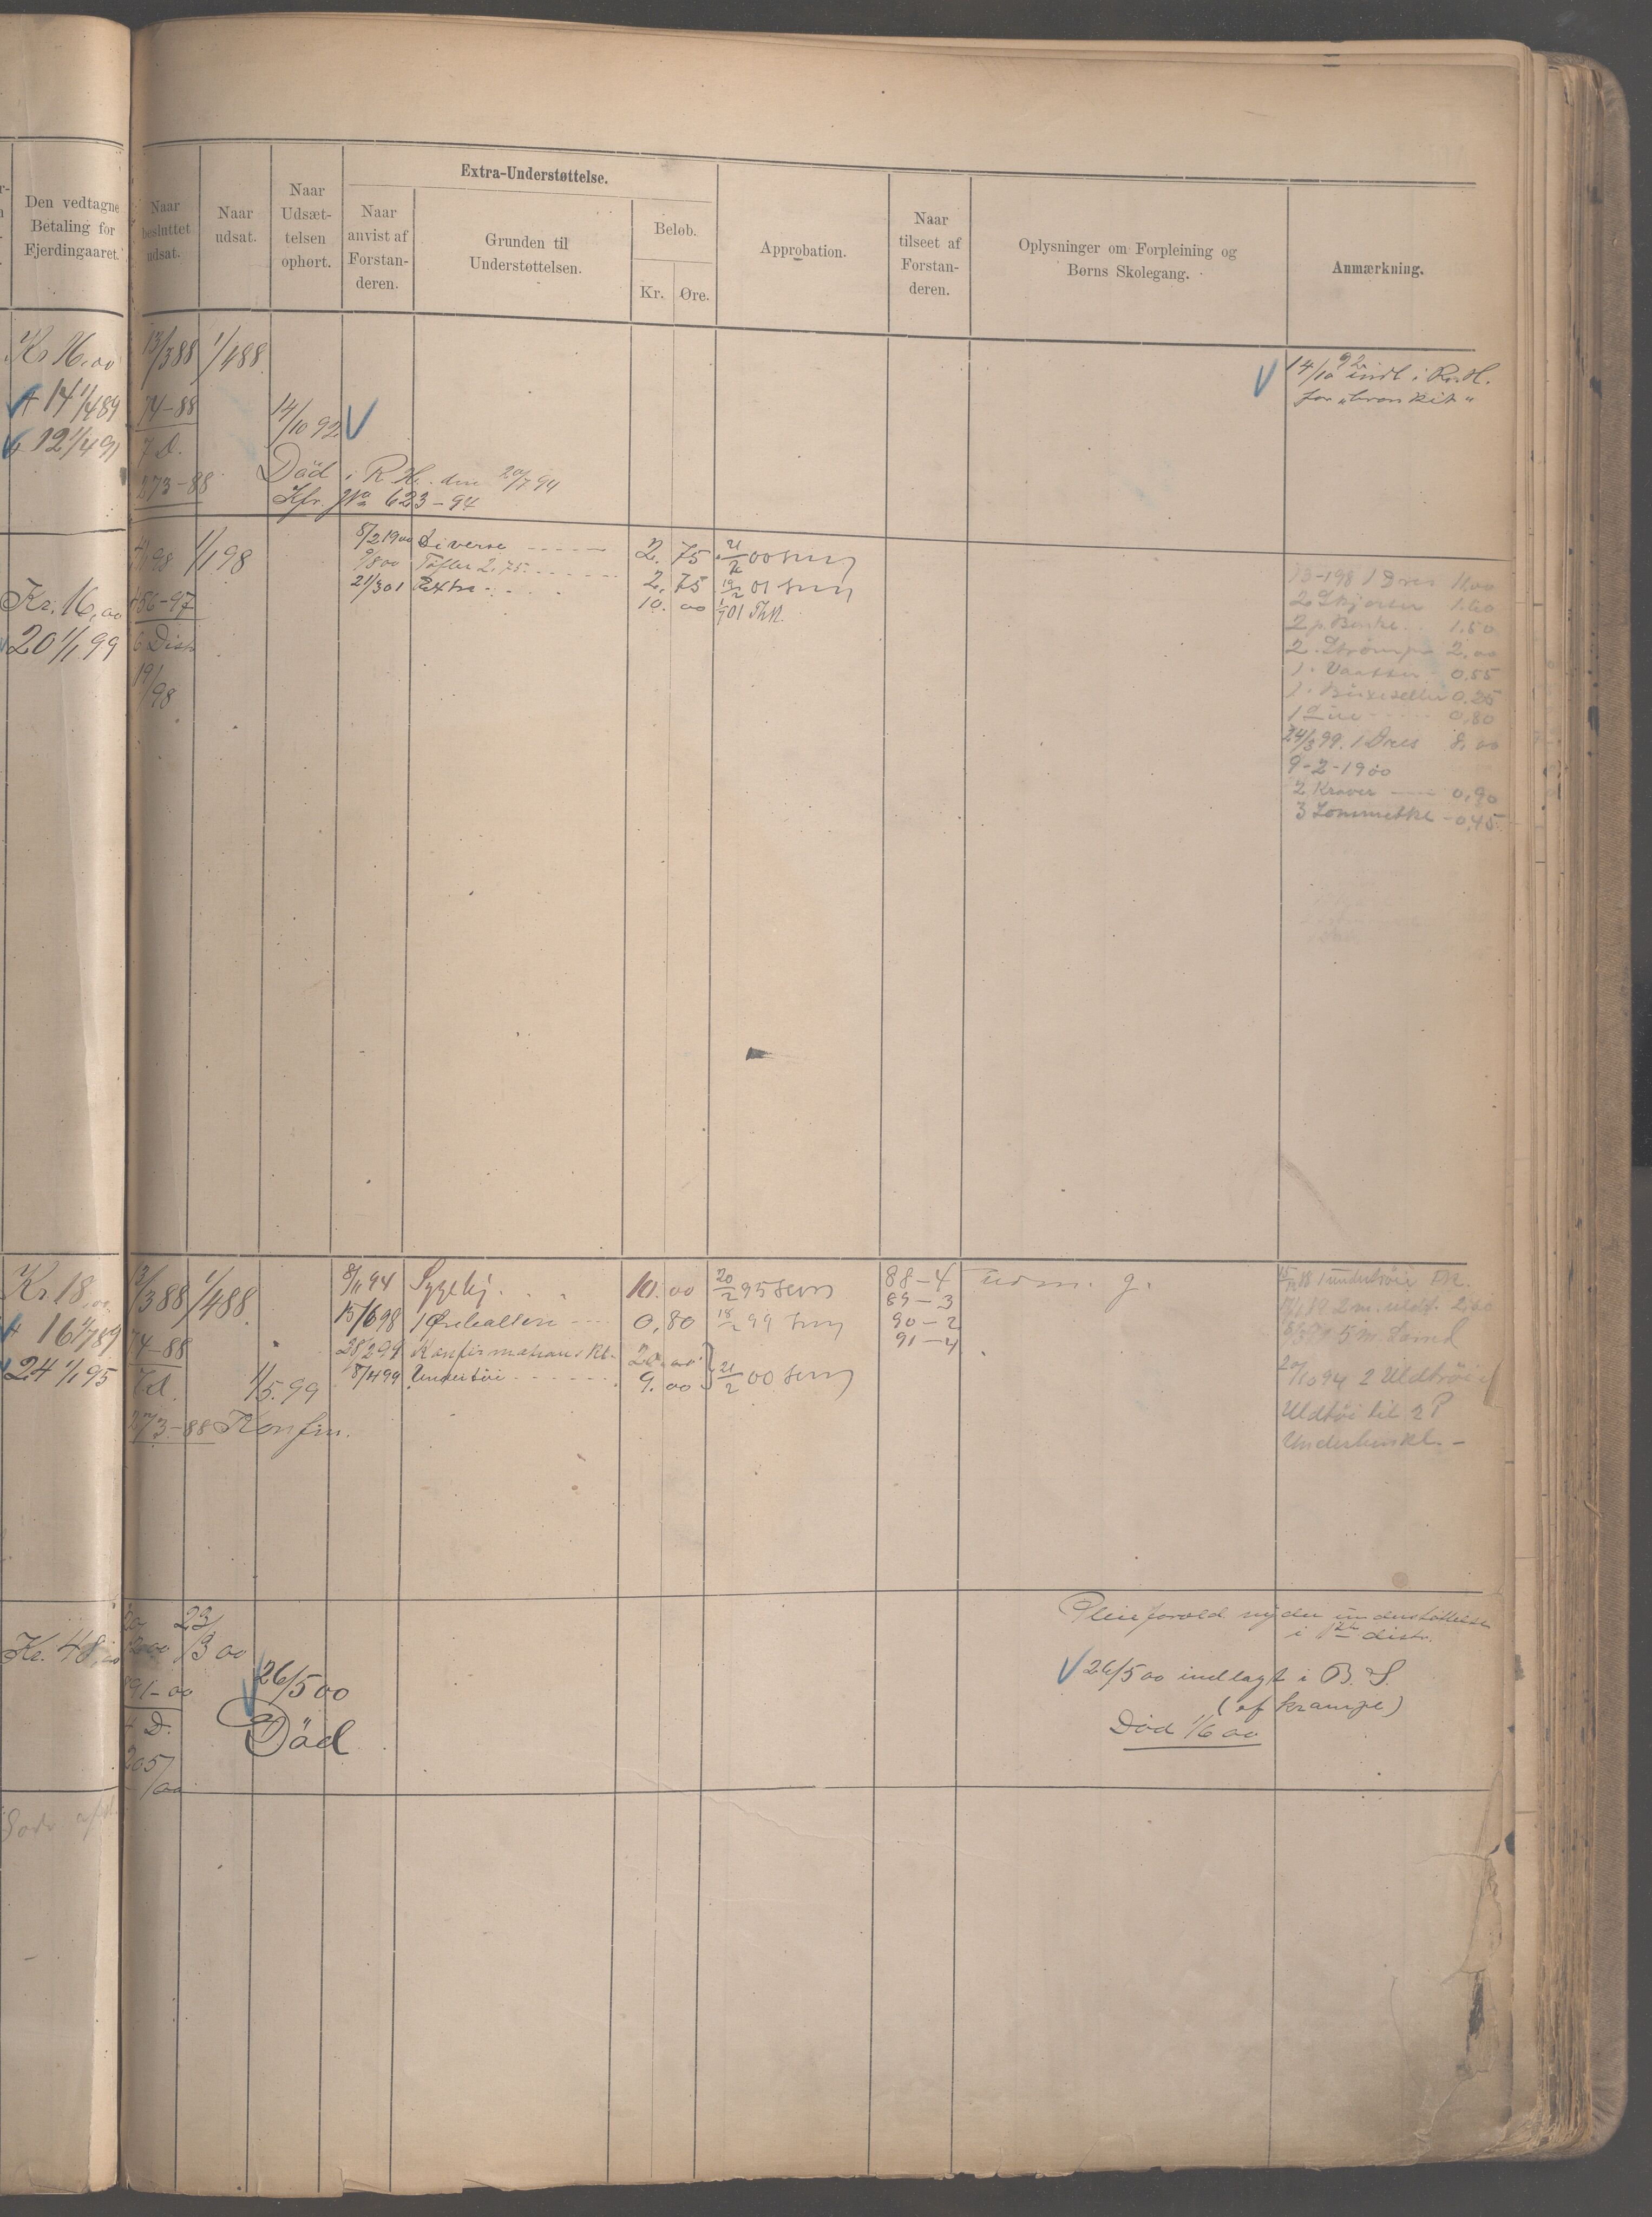 Extra-Understøttelse.
Den vedtagne Betaling for Fjerdingaaret.
Naar besluttet udsat.
Naar udsat.
Naar Udsæt-
telsen
ophørt.
Naar
anvist af
Forstan-
deren.
Grunden til
Understøttelsen.
Beløb.
Kr. Øre.
Approbation.
Naar
tilseet af
Forstan-
deren.
Oplysninger om Forpleining og
Børns Skolegang.
Anmærkning.
Kr 16,00 13/3 88 1/4 88
14 1/4 89 74-88 14/10 92
12 1/4 91 7 D.
273-88
Død i R. H. den 20/7 94
Kfr. No 623-94
14/10 92 indl i R.H.
for „bronkit"
1/1 98
Kr. 16,00 486-97
20 1/1 99 6 Dist
19/98
8/2 1900 Diverse 2. 75 21/2 00
9/8 00 Tøfler 2,75 2. 75 19/2 01
21/3 01 Extra 10. 00 1/7 01
13-1 98 1 Dres 11,00
2 Skjorter 1.60
2 p. Benkl. 1.50
2 . Strømper 2,00
1 . Vaatter 0.55
1 . Buxeseller 0.25
1 0,80
24/3 99. 1 Dres 8,00
9-2-1900
2 Kraver 0,90
3 Lommetkl 0,45
Kr 18,00 13/3 88 1/4 88
16 1/7 89 74-88
24 1/1 95 7d. 1/5.99
273-88 Konfirm.
8/11 94 Sygeligh. 10. 00 20/2 95
15/6 98 0,80 18/2 99
28/2 99 Konfirmations Kl. 20. 00
8/4 99 Undertøi 9. 00 21/2 00
88-4 udm. g.
89-3
90-2
91-4
1 undertrøie
2 m. uldt. 2,00
5 m.
20/10 94 2 Uldtrøier
Uldtøi til 2 P
Underbenkl. -
Kr. 48,00 23/3 00
91-00 26/5 00
4 D. Död
205/00
Pleieforæld nyder understøttelse
i distr.
26/5 00 indlagt i B. S.
(af krampe)
Död 1/6 00